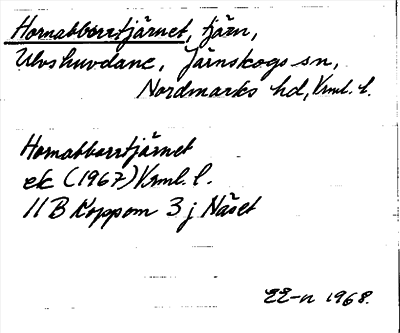 Hornabborrtjärnet, tjärn,
Ulvshuvdane, Järnskogs sn,
Nordmarks hd, Vrml. l.
Hornabborrtjärnet
ek (1967) Vrml. l.
11 B Koppom 3 j Näset
EE-n 1968.